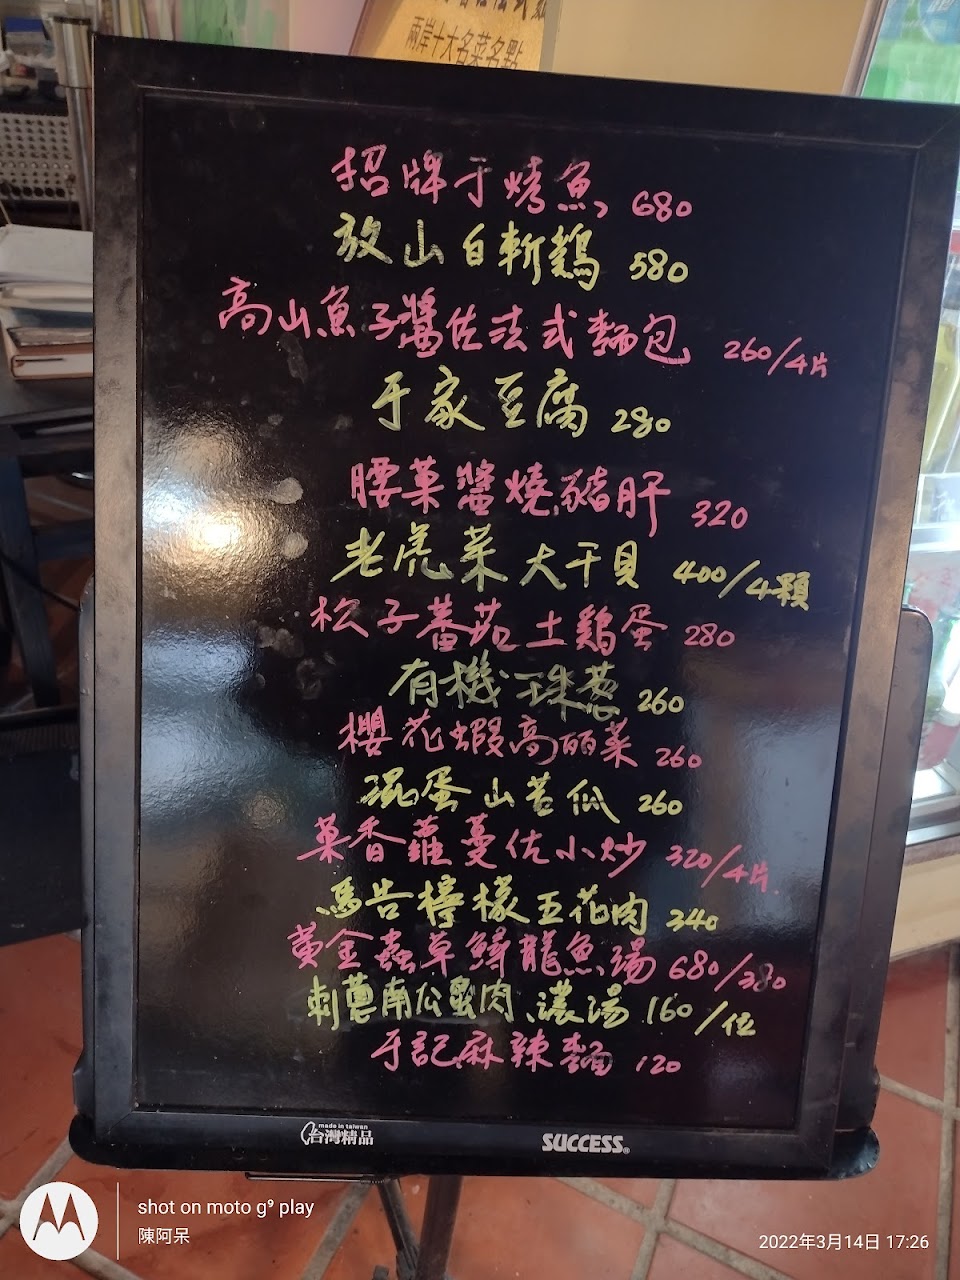 兩岸十大名菜名點
招牌于烤魚 680
放山白斬鷄 580
高山魚子醬佐法式麵包 260/4片
于家豆腐 280
腰菓醬燒豬肝 320
老虎菜大干貝 400/4顆
松子蕃茄土鷄蛋 280
有機珠蔥 260
櫻花蝦高麗菜 260
混蛋山苦瓜 260
菓香蘿蔓佐小炒 320/4片
馬告檸檬五花肉 340
黃金蟲草鱘龍魚湯 680/380
刺蔥南瓜 肉濃湯 160/位
于記麻辣麵 120
made in taiwan
台灣精品
SUCCESS®
shot on moto g⁹ play
陳阿呆
2022年3月14日 17:26